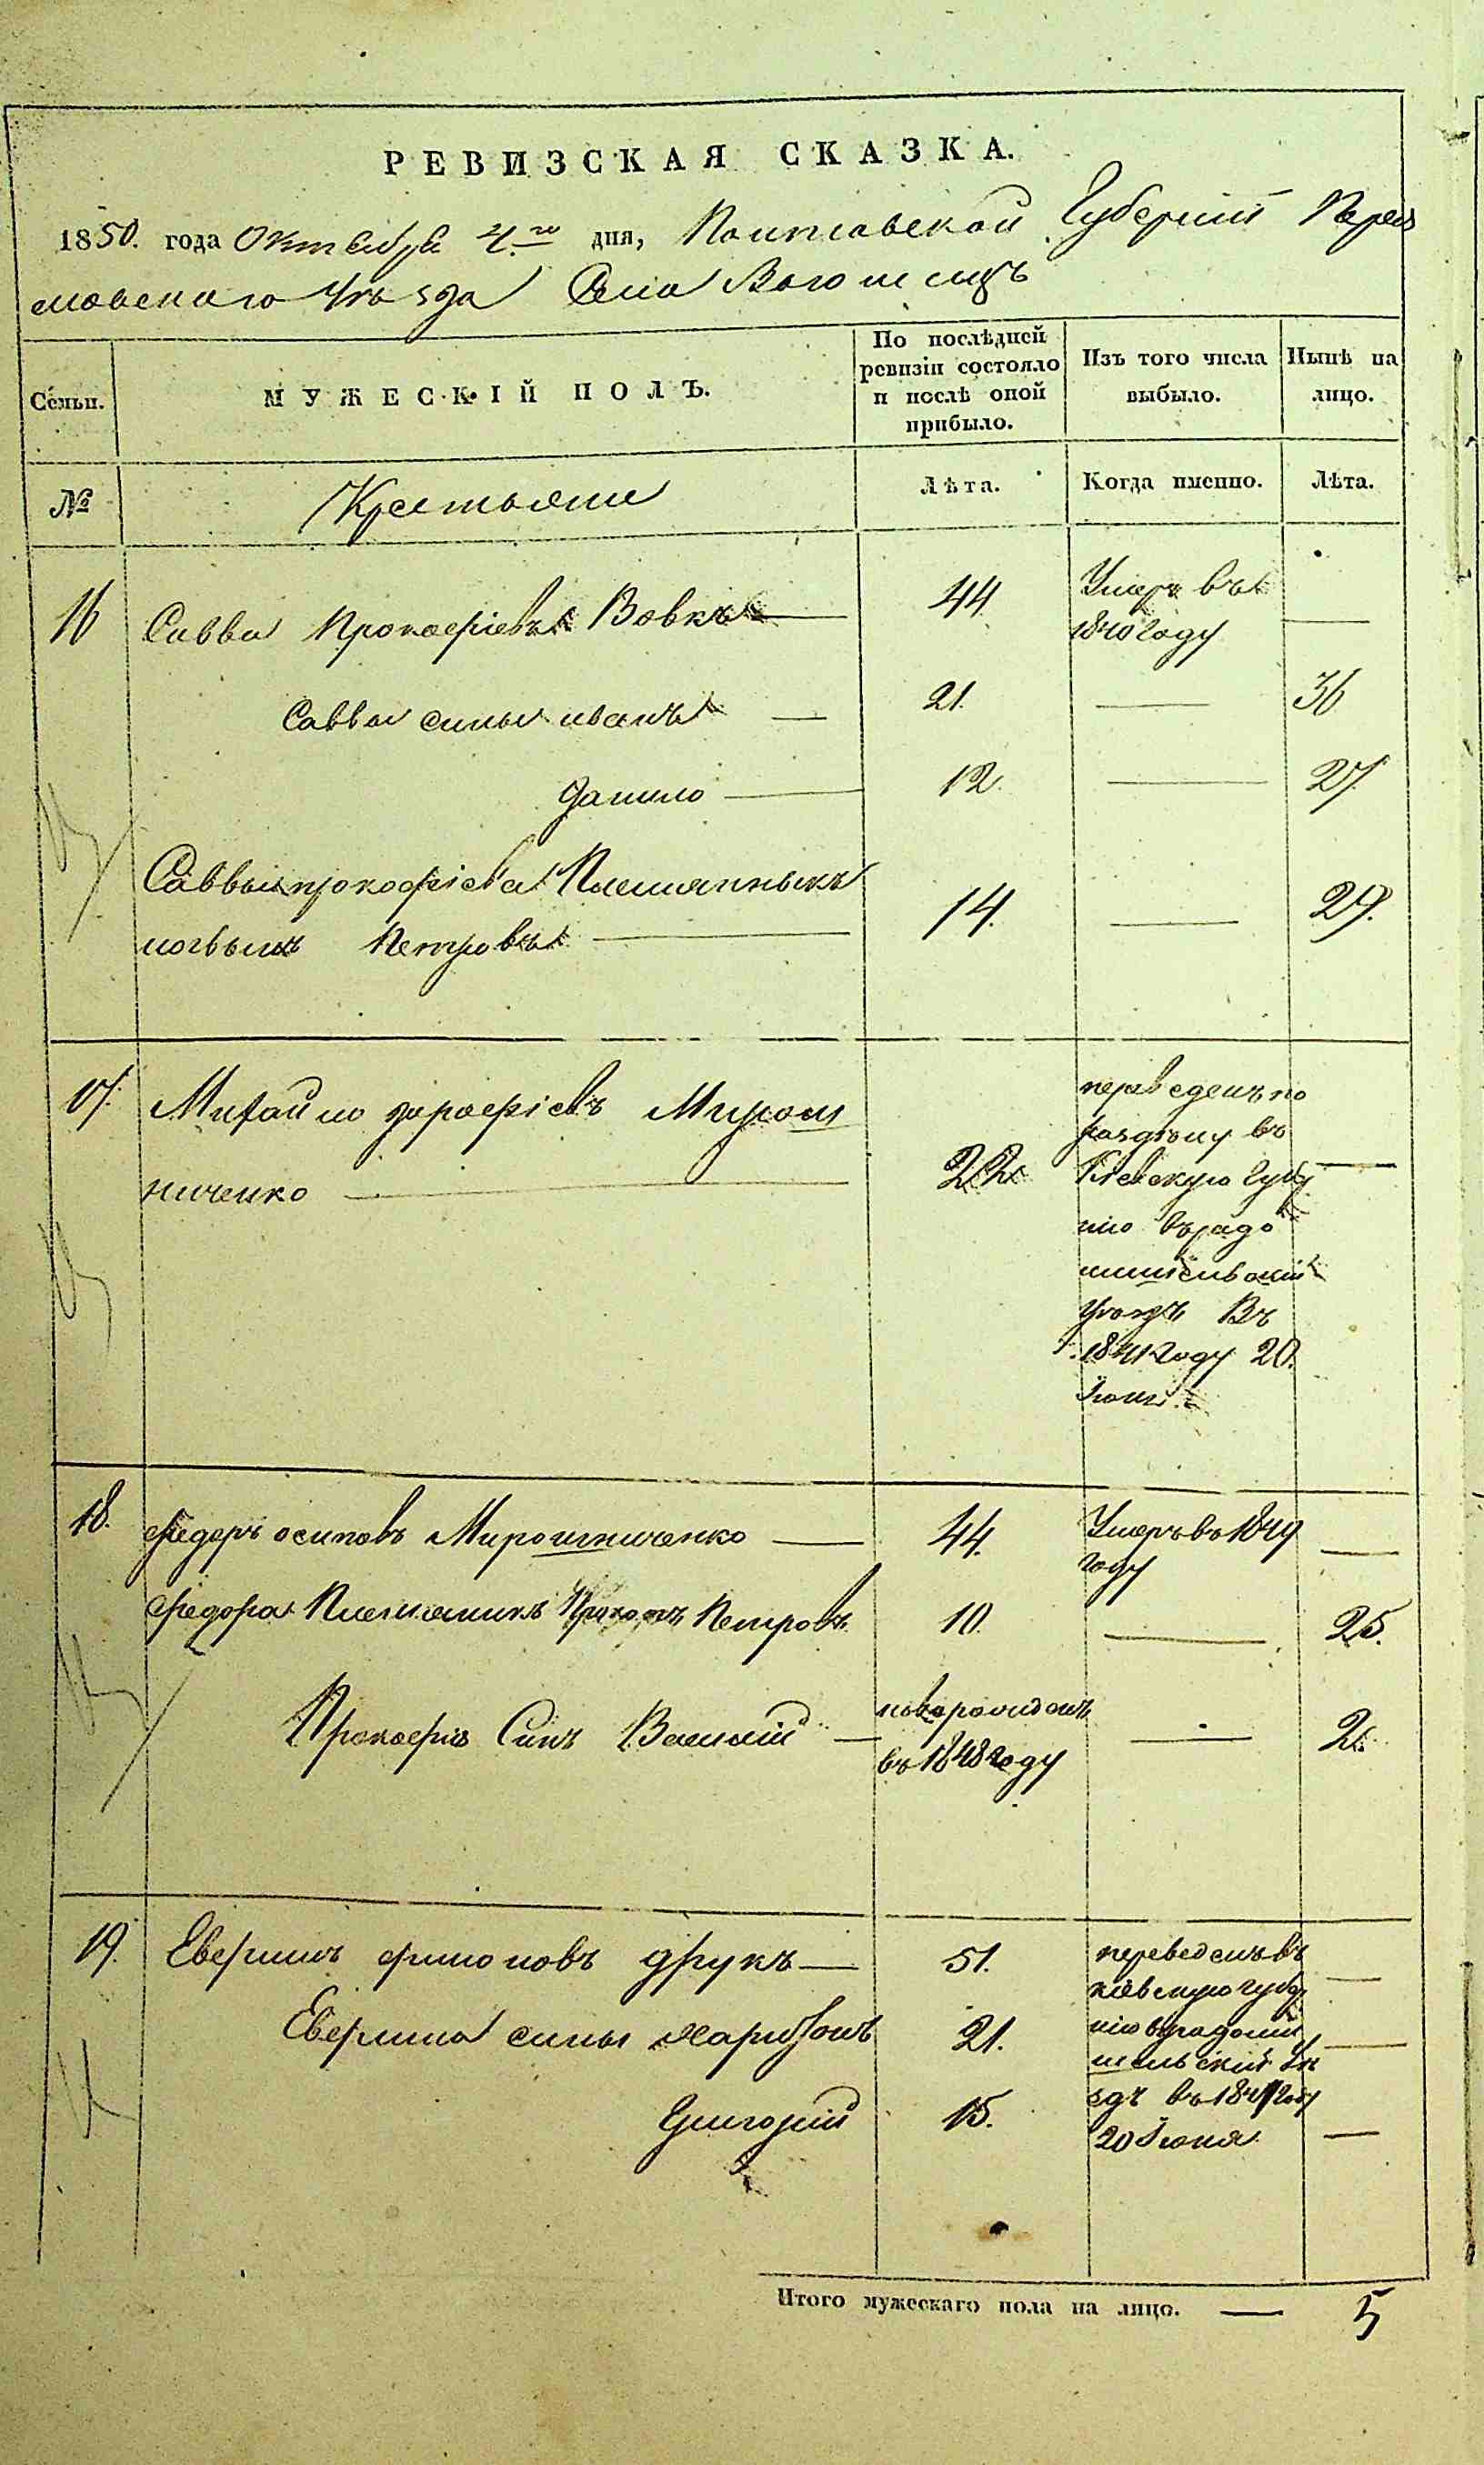 РЕВИЗСКАЯ СКАЗКА.
1850. года Октября 4.го дня, Полтавской Губернии Перея
словского Уѣзда Села
Семьи.
МУЖЕСКІЙ ПОЛЪ.
По послѣдней ревизіи состояло и послѣ оной прибыло.
Изъ того числа выбыло.
Нынѣ на лицо.
№
Крестьяне
Лѣта.
Когда именно.
Лѣта.
16 Савва Прокофіевъ Вовкъ — 44. Умеръ въ —
1840 году
Саввы сины иванъ — 21. — 36
Данило — 12. — 27.
Саввы прокофіева Племянныкъ
Петровъ — 14. — 29.
17. Михайло Мирош
ниченко — 22 —
переведенъ по
раздѣлу въ
Кіевскую Губер
нію въ радо
мишельвскій
уѣздъ Въ
1841 году 20.
Іюня.
18. Федоръ осиповъ Мирошниченко — 44. Умеръ въ 1849 —
году
Федора Племяникъ Прокопъ Петровъ 10. — 25.
Прокофія Синъ Василій — новорожденъ — 2.
въ 1848 году
19. друкъ — 51. —
сины харитонъ 21. —
Григорій 15. —
переведенъ въ
кіевскую губер
нію врадоми
шельскій Уѣ
здъ въ 1841 году
20 Іюня
Итого мужескаго пола на лицо. — 5